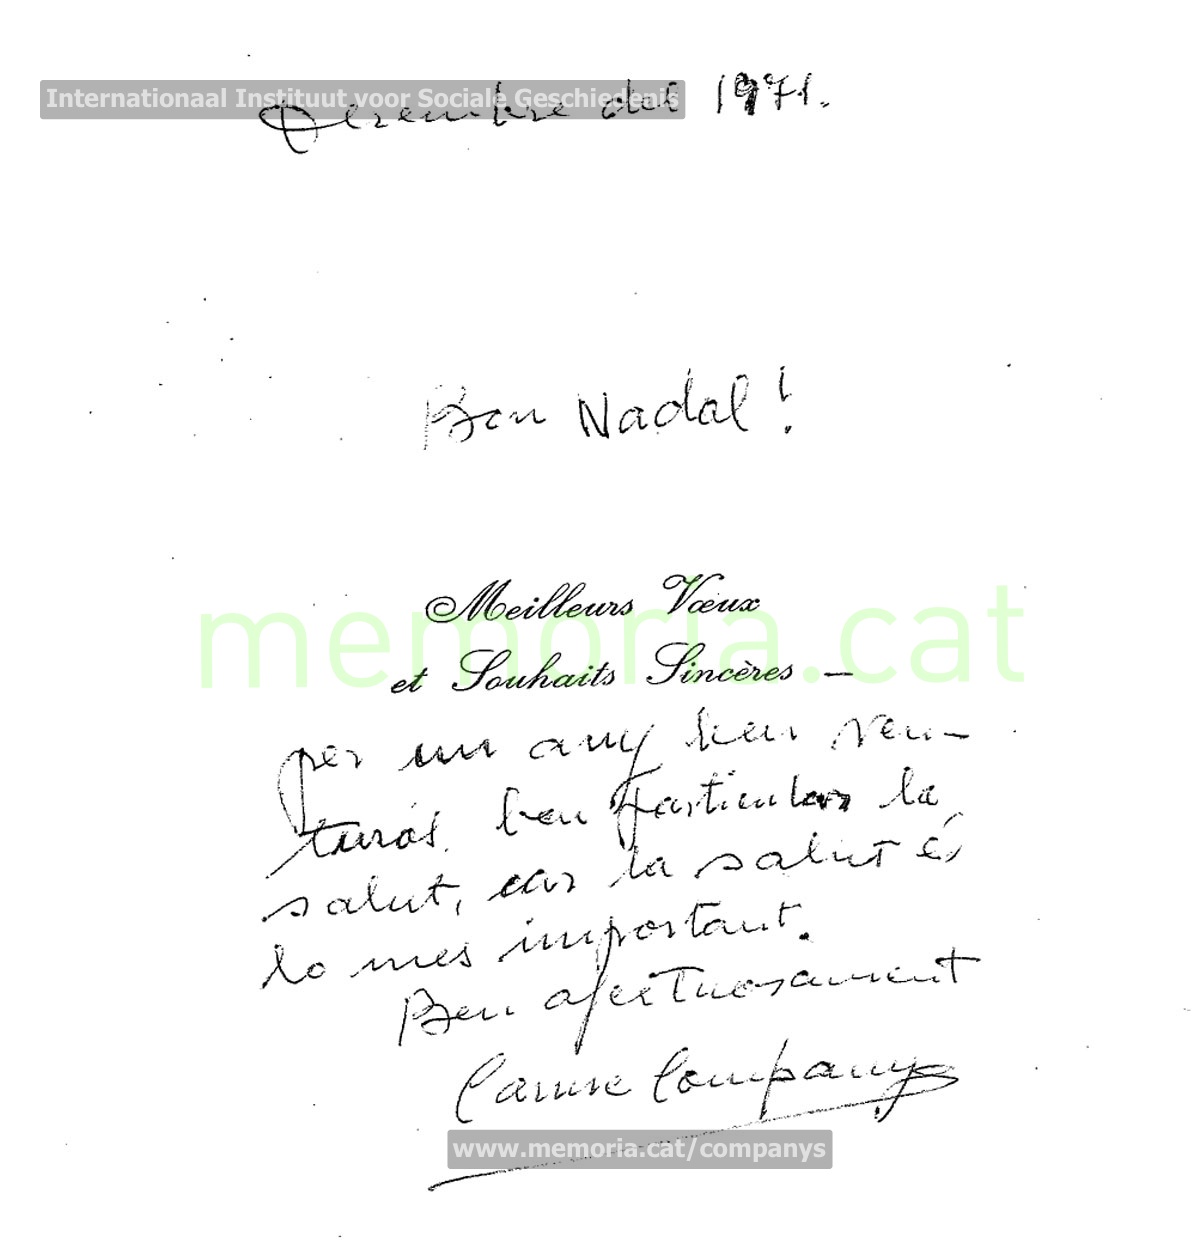 Internationaal Instituut voor Sociale Geschiedenis
Desembre del 1971.
Bon Nadal!
memoria.cat
Meilleurs Vœux
et Souhaits Sincères —
per un any ben ven-
turós. ben particular la
salut, car la salut és
lo mes important.
Ben afectuosament
Carme Companys
www.memoria.cat/companys